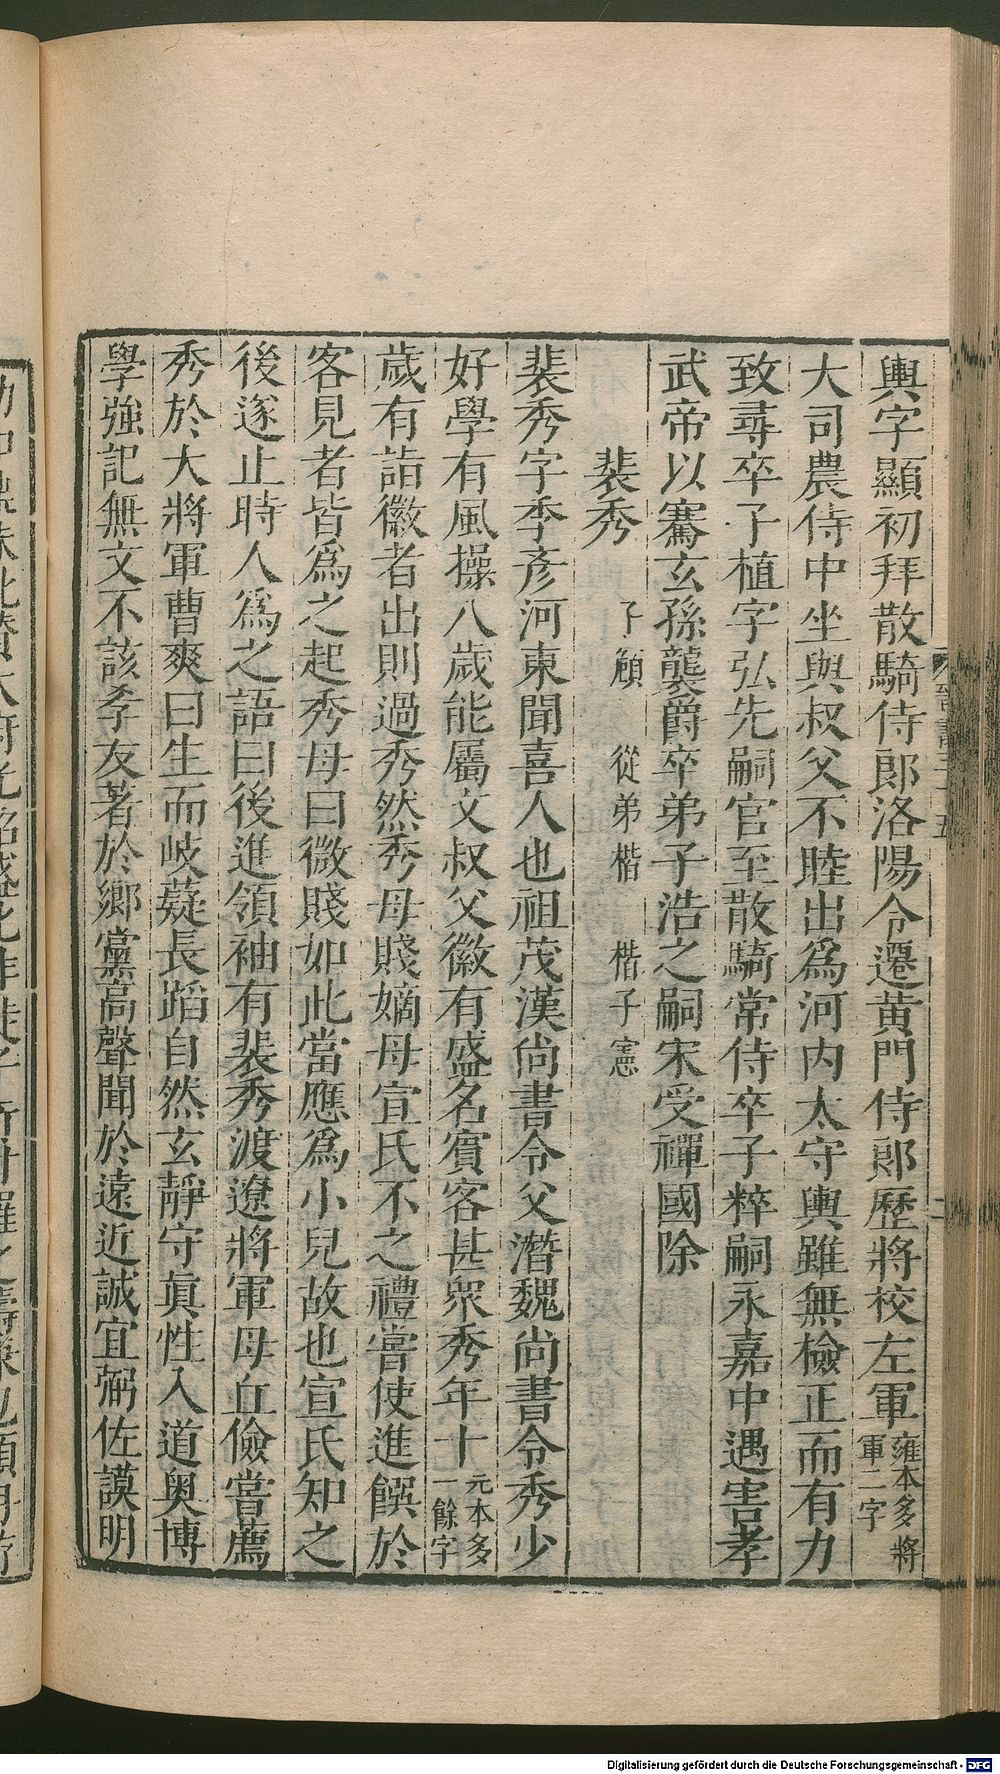 輿字顯初拜散騎侍郎洛陽令遷黄門侍郎歷將校左軍雍本多將軍二字
大司農侍中坐與叔父不睦出爲河内太守輿雖無檢正而有力
致尋卒子植字弘先嗣官至散騎常侍卒子粹嗣永嘉中遇害孝
武帝以騫玄孫襲爵卒弟子浩之嗣宋受禪國除
裴秀 子頠 從弟楷 楷子憲
裴秀字季彥河東聞喜人也祖茂漢尚書令父潛魏尚書令秀少
好學有風操八歲能屬文叔父徽有盛名賓客甚衆秀年十元本多一餘字
歲有詣徽者出則過秀然秀母賤嫡母宣氏不之禮嘗使進饌於
客見者皆爲之起秀母曰微賤如此當應爲小兒故也宣氏知之
後遂止時人爲之語曰後進領袖有裴秀渡遼將軍毋丘儉嘗薦
秀於大將軍曹爽曰生而岐薿長蹈自然玄靜守眞性入道奥博
學強記無文不該孝友著於鄉黨高聲聞於遠近誠宜弼佐謨明
Digitalisierung gefördert durch die Deutsche Forschungsgemeinschaft - DFG